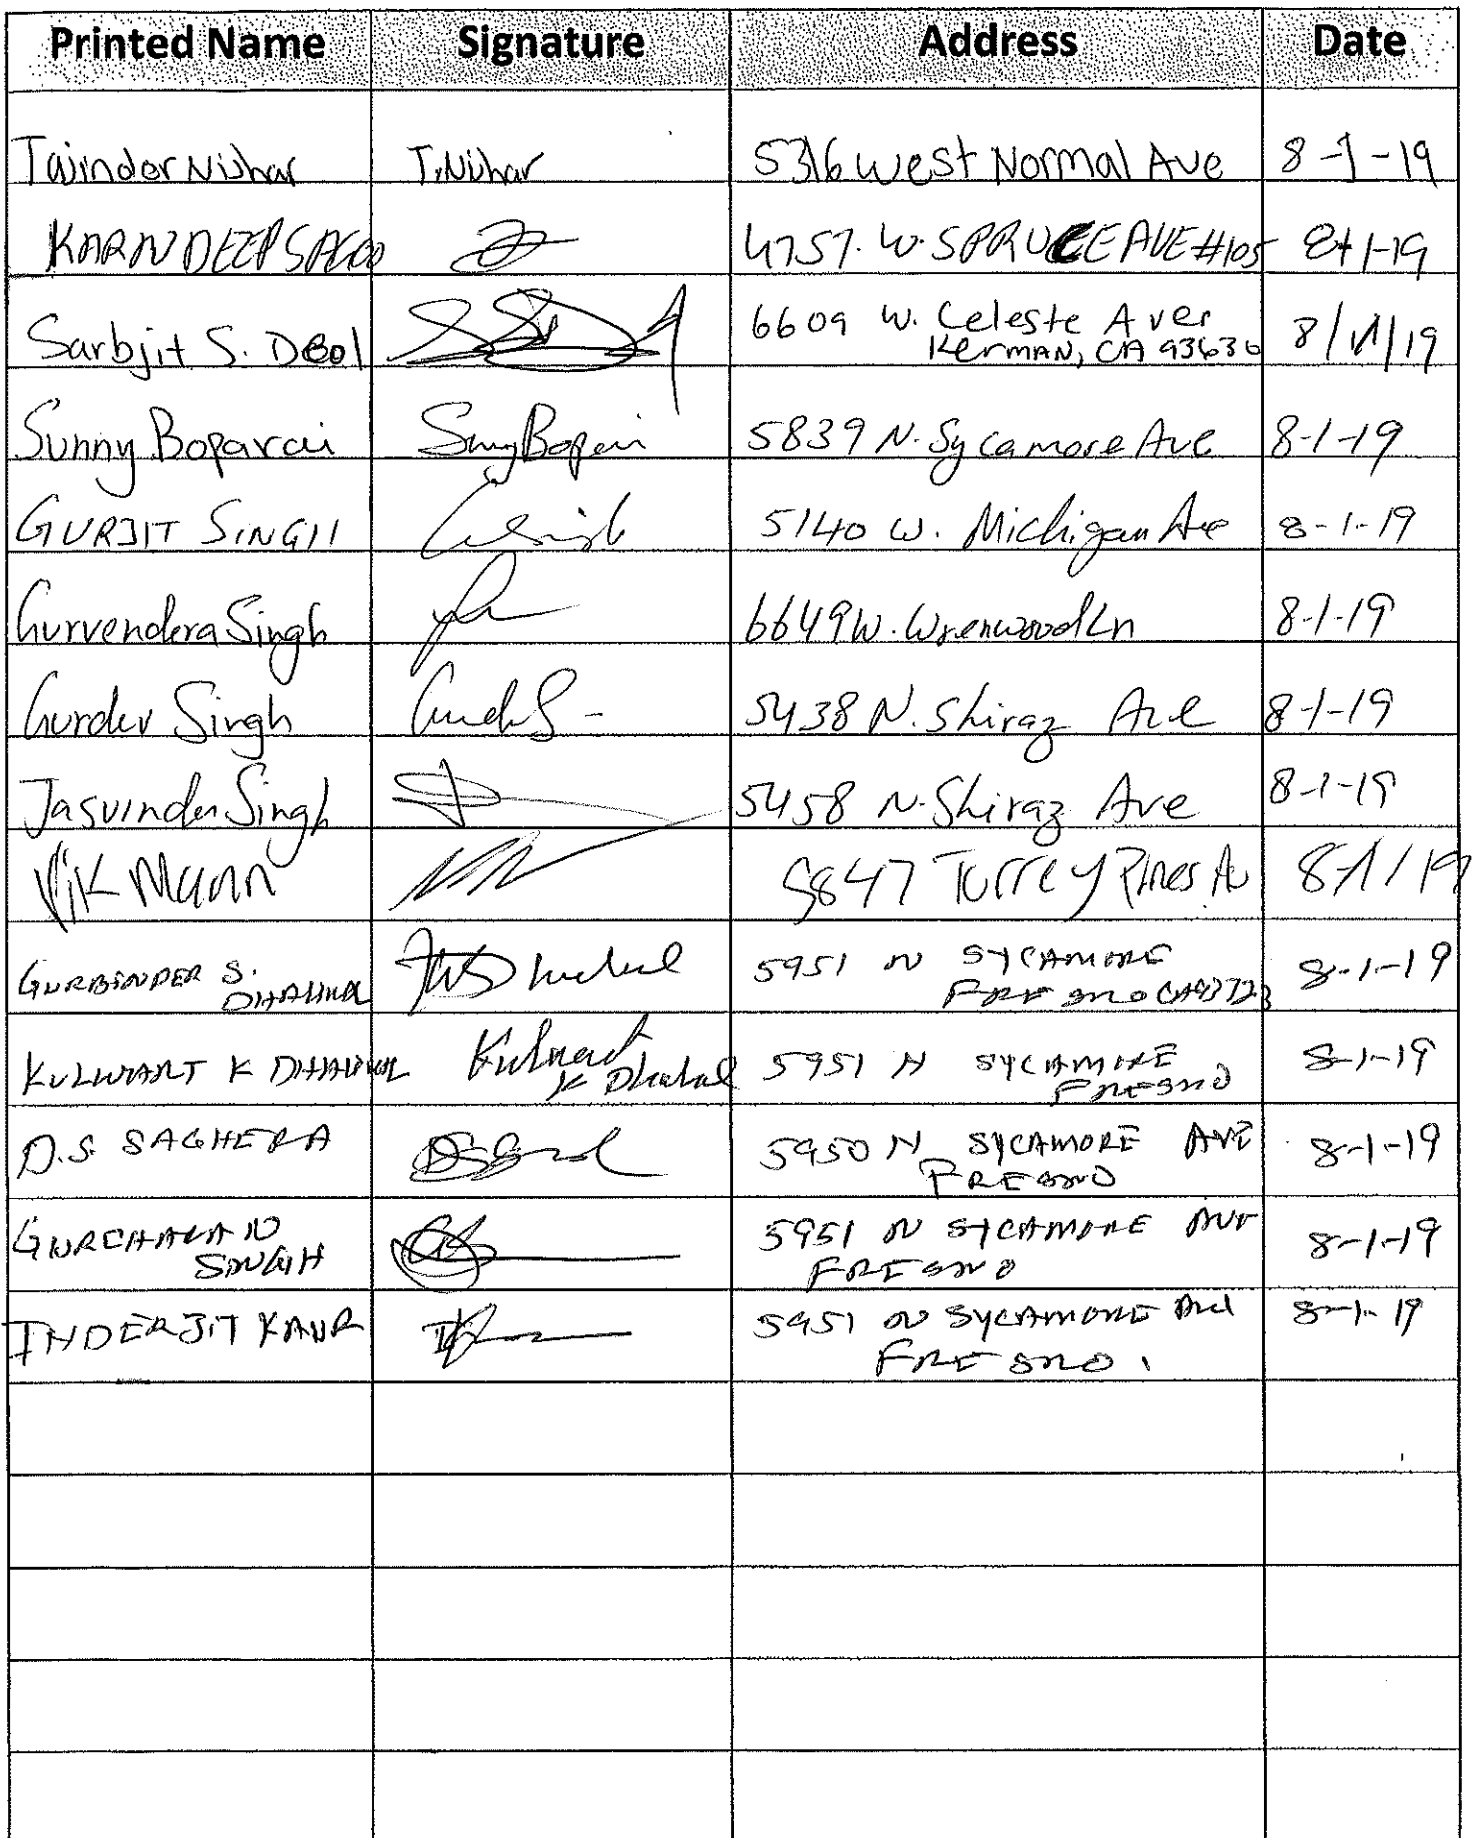 Printed Name Signature Address Date
Tajinder Nijhar T.Nijhar 5316 West Normal Ave 8-1-19
KARNDEEP 4757. W. SPRUCE AVE #105 8-1-19
Sarbjit S. Deol 6609 W. Celeste Ave
Kerman, CA 93630 8/1/19
Sunny Boparai Sunny Boparai 5839 N. Sycamore Ave 8-1-19
GURJIT SINGH 5140 W. Michigan Ave 8-1-19
Gurvendera Singh 6649 W. Wrenwood Ln 8-1-19
Gurdev Singh 5438 N. Shiraz Ave 8-1-19
Jasvinder Singh 5458 N. Shiraz Ave 8-1-19
Vik Mann 5847 Torrey Pines Av 8/1/19
GURBINDER S.
DHALIWAL 5951 N SYCAMORE
FRESNO CA 93723 8-1-19
KULWANT K DHALIWAL Kulwant
K Dhaliwal 5951 N SYCAMORE
FRESNO 8-1-19
D.S. SAGHERA 5950 N SYCAMORE AVE
FRESNO 8-1-19
GURCHARAN
SINGH 5951 N SYCAMORE AVE
FRESNO 8-1-19
INDERJIT KAUR 5951 N SYCAMORE AVE
FRESNO. 8-1-19